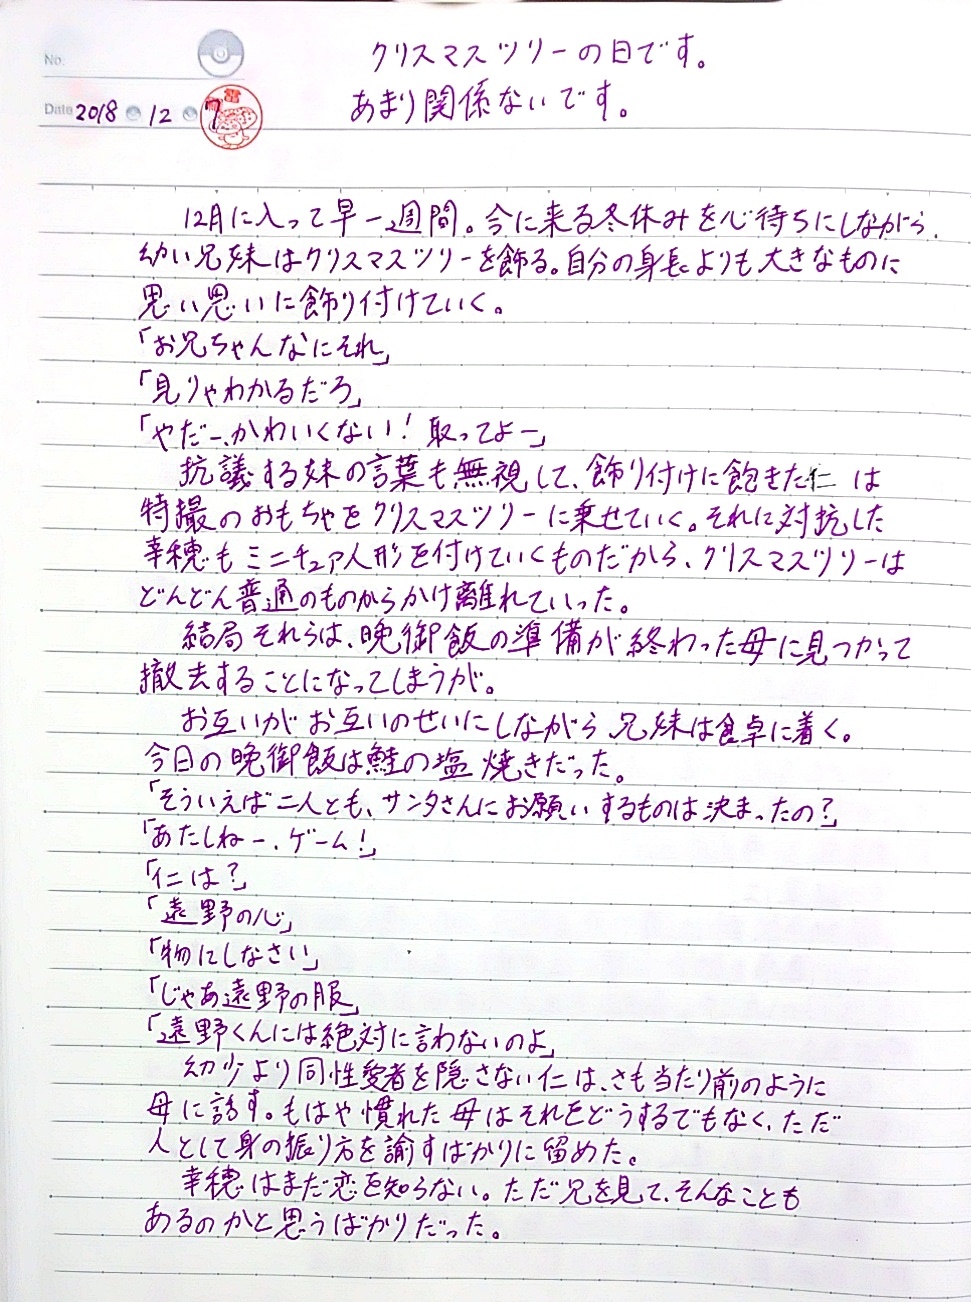 No.
クリスマスツリーの日です。
Date 2018 12 7
あまり関係ないです。
12月に入って早一週間。今に来る冬休みを心待ちにしながら、
幼い兄妹はクリスマスツリーを飾る。自分の身長よりも大きなものに
思い思いに飾り付けていく。
「お兄ちゃんなにそれ」
「見りゃわかるだろ」
「やだー、かわいくない！取ってよー」
抗議する妹の言葉も無視して、飾り付けに飽きた仁は
特撮のおもちゃをクリスマスツリーに乗せていく。それに対抗した
幸穂もミニチュア人形を付けていくものだから、クリスマスツリーは
どんどん普通のものからかけ離れていった。
結局それらは、晩御飯の準備が終わった母に見つかって
撤去することになってしまうが。
お互いがお互いのせいにしながら兄妹は食卓に着く。
今日の晩御飯は鮭の塩焼きだった。
「そういえば二人とも、サンタさんにお願いするものは決まったの？」
「あたしねー、ゲーム！」
「仁は？」
「遠野の心」
「物にしなさい」
「じゃあ遠野の服」
「遠野くんには絶対に言わないのよ」
幼少より同性愛者を隠さない仁は、さも当たり前のように
母に話す。もはや慣れた母はそれをどうするでもなく、ただ
人として身の振り方を諭すばかりに留めた。
幸穂はまだ恋を知らない。ただ兄を見て、そんなことも
あるのかと思うばかりだった。